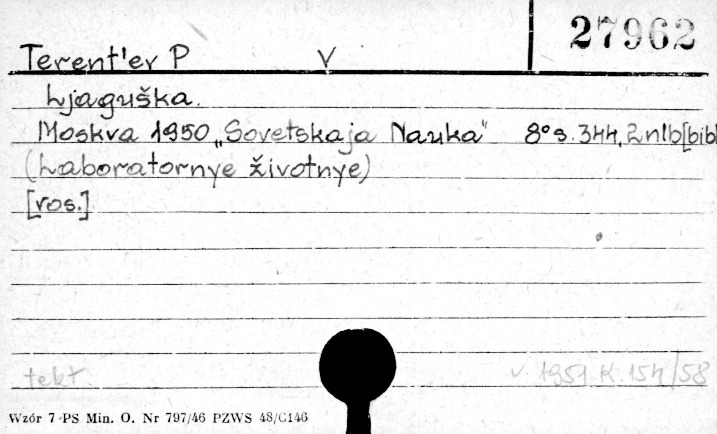 27962
Terent'ev P V
Ljaguška.
Moskva 1950 „Sovetskaja Nauka" 8° s. 344, 2 nlb [bibl
(Laboratornye životnye)
[ros.]
tekt. v. 1951 K. 154/58
Wzór 7-PS Min. O. Nr 797/46 PZWS 48/C146